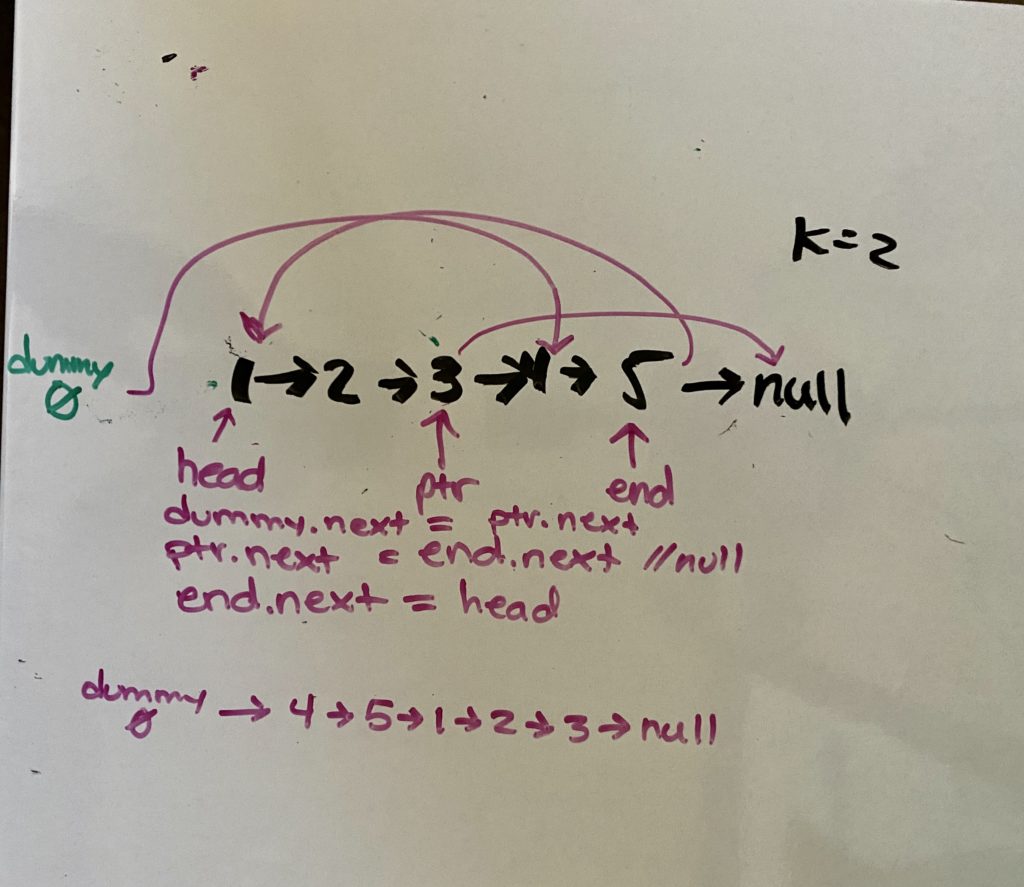 k=2
dummy
0
1→2→3→4→5→null
head ptr end
dummy.next = ptr.next
ptr.next = end.next //null
end.next = head
dummy
0 → 4→5→1→2→3→null